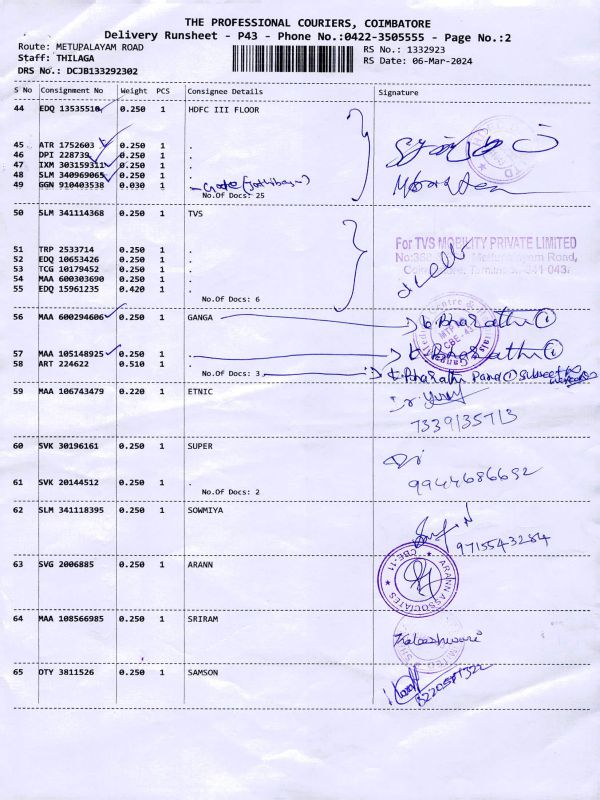 THE PROFESSIONAL COURIERS, COIMBATORE
Delivery Runsheet - P43 - Phone No.:0422-3505555 - Page No.:2
Route: METUPALAYAM ROAD RS No.: 1332923
Staff: THILAGA RS Date: 06-Mar-2024
DRS No.: DCJB133292302
S No Consignment No Weight PCS Consignee Details Signature
44 EDQ 13535510 0.250 1 HDFC III FLOOR
45 ATR 1752603 0.250 1 .
46 DPI 228739 0.250 1 .
47 IXM 303159311 0.250 1 .
48 SLM 340969065 0.250 1 .
49 GGN 910403538 0.030 1 .
No.Of Docs: 25
50 SLM 341114368 0.250 1 TVS
For TVS MOBILITY PRIVATE LIMITED
51 TRP 2533714 0.250 1 .
52 EDQ 10653426 0.250 1 .
53 TCG 10179452 0.250 1 .
54 MAA 600303690 0.250 1 .
55 EDQ 15961235 0.420 1 .
No.Of Docs: 6
56 MAA 600294606 0.250 1 GANGA
k.Bharathi ①
57 MAA 105148925 0.250 1 .
k.Bharathi ①
58 ART 224622 0.510 1 .
No.Of Docs: 3
k.Bharathi
59 MAA 106743479 0.220 1 ETNIC
7339135713
60 SVK 30196161 0.250 1 SUPER
9944686692
61 SVK 20144512 0.250 1 .
No.Of Docs: 2
62 SLM 341118395 0.250 1 SOWMIYA
9715543284
63 SVG 2006885 0.250 1 ARANN
ARANN ASSOCIATES
CBE-11
64 MAA 108566985 0.250 1 SRIRAM
Kaleeshwari
65 DTY 3811526 0.250 1 SAMSON